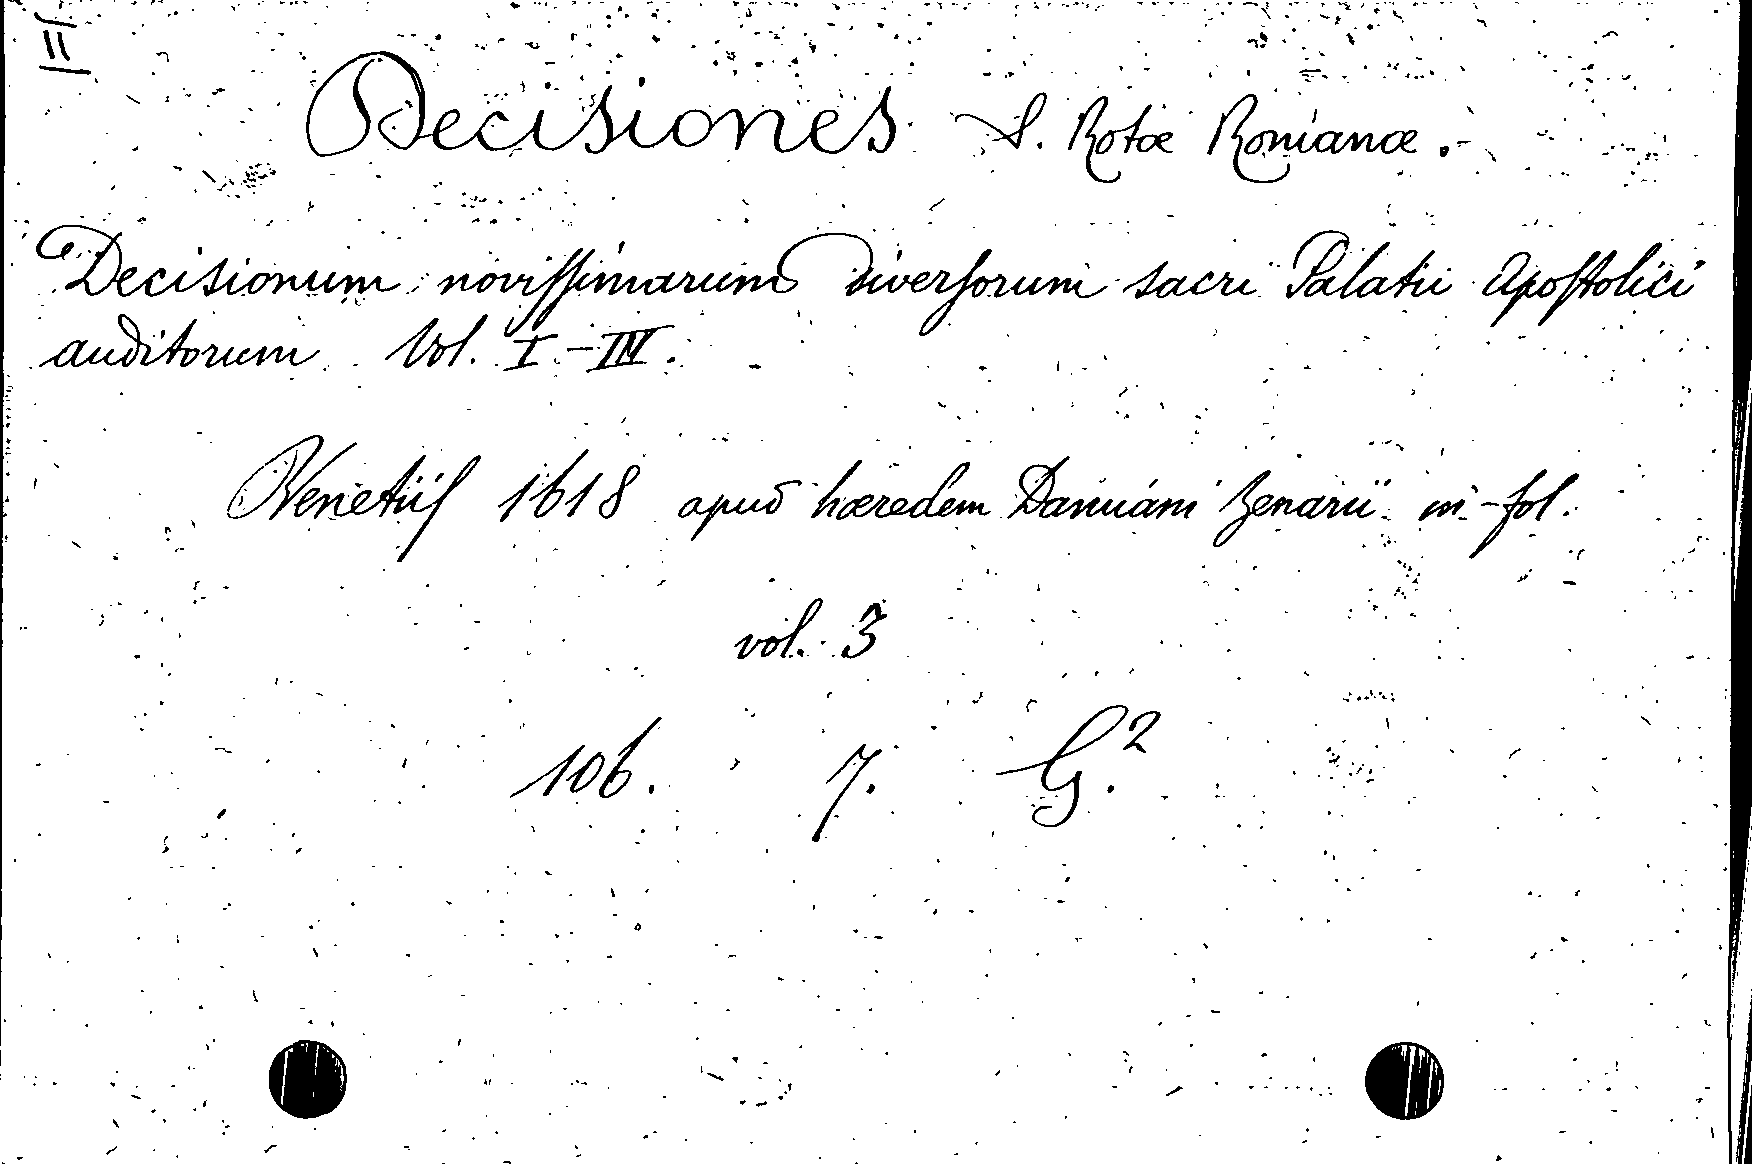 Decisiones S. Rotæ Romanæ.
Decisionum novissimarum diversorum sacri Palatii Apostolici
auditorum Vol. I-IV.
Venetiis 1618 apud hæredem Damiani Zenarii in-fol.
vol. 3
106. 7. G.²